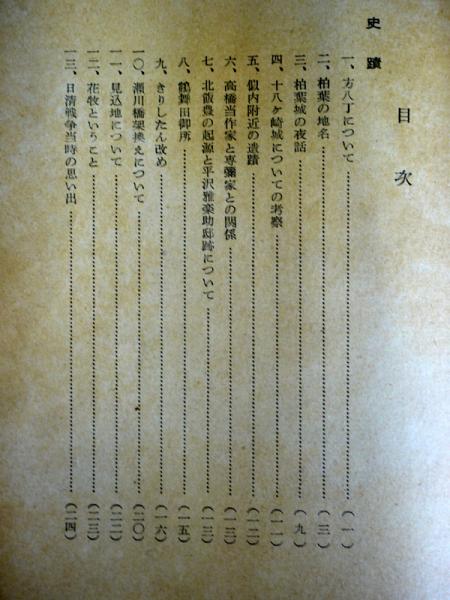 目次
史蹟
一、方八丁について………(一)
二、柏葉の地名………(三)
三、柏葉城の夜話………(九)
四、十八ケ崎城についての考察………(一一)
五、似内附近の遺蹟………(一二)
六、高橋当作家と専彌家との関係………(一三)
七、北飯豊の起源と平沢雅楽助邸跡について………(一三)
八、鶴舞田御所………(一五)
九、きりしたん改め………(一六)
一〇、瀬川橋架換えについて………(二〇)
一一、見込地について………(二二)
一二、花牧ということ………(二三)
一三、日清戦争当時の思い出………(二四)